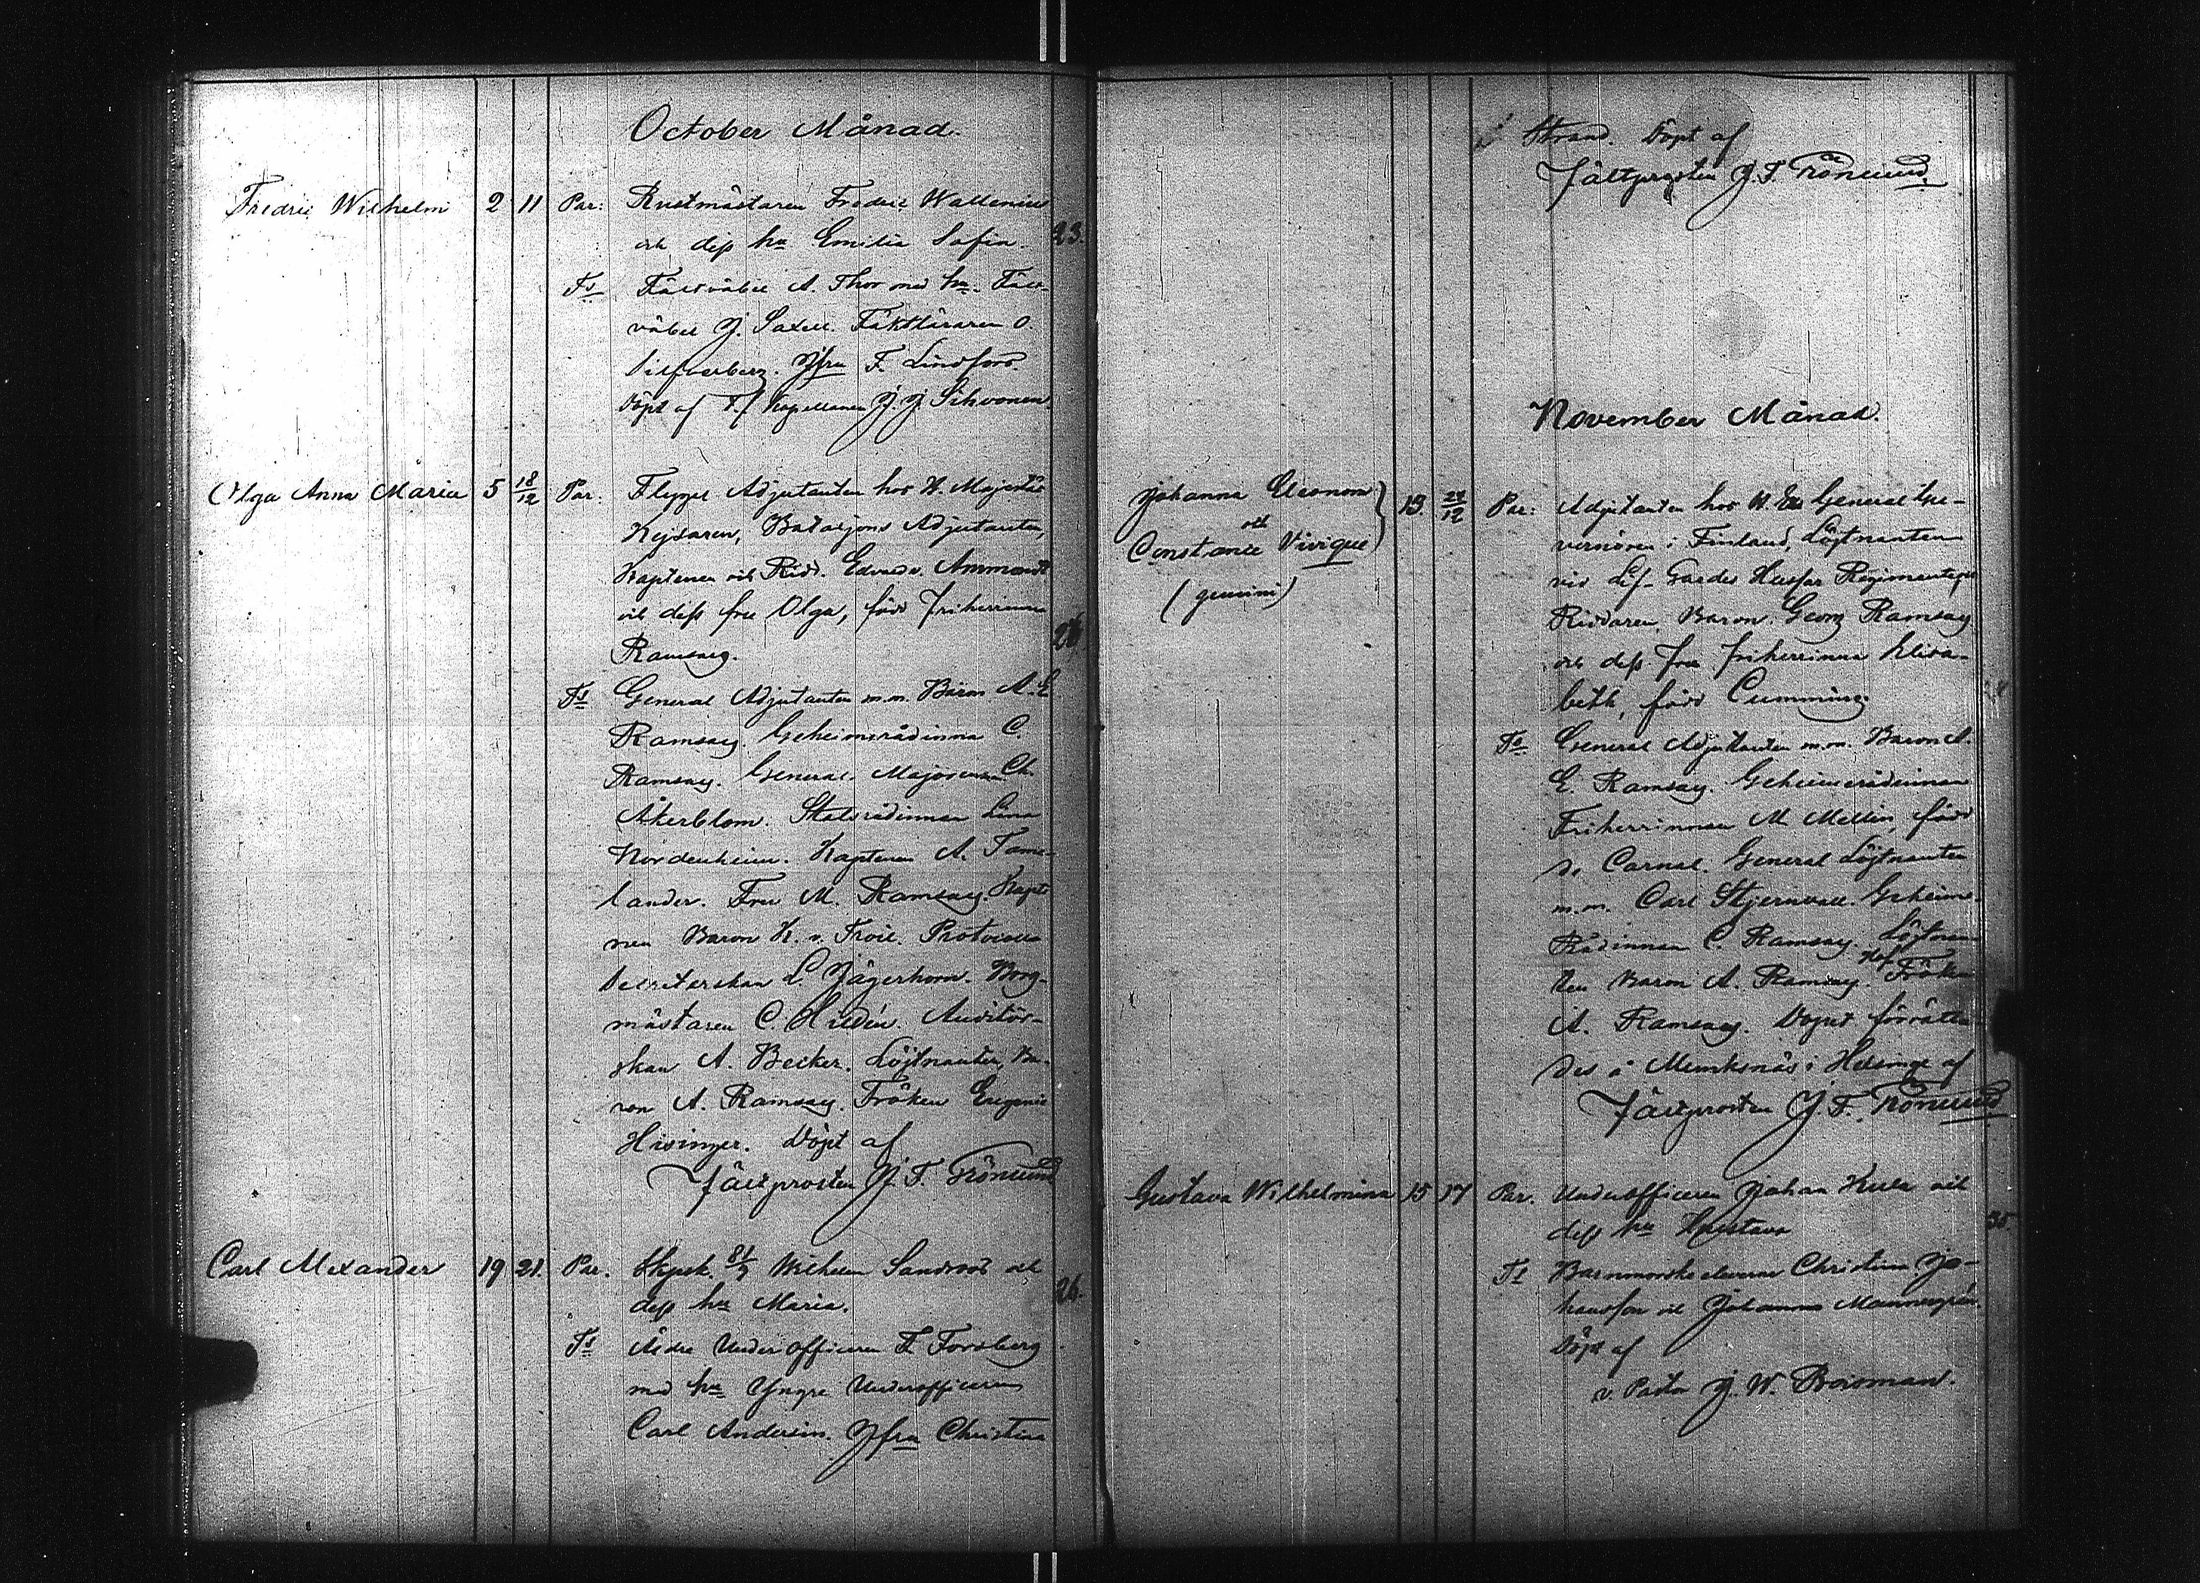 October Månad.
Fredric Wilhelm 2 11 Par: Rustmästaren Fredric Wallenius
och dess hu Emilia Sofia. 23.
Ts Fältväbel A. Thor med hu. Fält-
väbel J. Saxell. Fäktläraren O.
Silfverberg. Jfru F. Lindfors.
Döpt af T.f Kapellanen J. J. Sihvonen.
Olga Anna Maria 5 18/12 Par. Flygel Adjutanten hos H. Majestät
Kejsaren, Bataljons Adjutanten,
Kaptenen och Ridd. Edvard Ammondt
och dess fru Olga, född friherrinna
Ramsay. 26
Ts General Adjutanten m.m. Baron A. E
Ramsay. Geheimerådinna C.
Ramsay. General Majorskan Ch.
Åkerblom. Statsrådinnan Lina
Nordenheim. Kapten A. Tame-
lander. Fru M. Ramsay. Kapte
nen Baron H. v. Troil. Protocolls
Secreterskan L. Jägerhorn. Borg-
mästaren C. Hedén. Auditör-
skan A. Becker. Löjtnanten, Ba-
ron A. Ramsay. Fröken Eugenie
Hisinger. Döpt af
Fältprosten J. F. Grönlund
Carl Alexander 19 21. Par. Skpsk. 81/7 Wilhelm Sandroos och
dess hu Maria. 26.
Ts Äldre Underofficeren F. Forsberg
med hu Yngre Underofficeren
Carl Andersin. Jfru Christina
Strand. Döpt af
Fältprosten J. F. Grönlund.
November Månad.
Johanna Eleonora
och
Constance Vivique
(gemini)
13 27/12 Par: Adjutanten hos H. Ex General Gu-
vernören i Finland, Löjtnanten
vid Lif-Gardes Hussar Regimentet,
Riddaren, Baron Georg Ramsay
och dess fru friherrinna Elisa-
beth, född Cumming.
Ts General Adjutanten m.m. Baron A.
E. Ramsay. Geheimerådinnan
Friherrinnan M. Mellin, född
de Carnal. General Löjtnanten
m.m. Carl Stjernvall. Geheime-
Rådinnan C. Ramsay. Löjtnan
ten Baron A. Ramsay. Hof Fröken
A. Ramsay. Dopet förrätta-
des å Munksnäs i Helsinge af
Fältprosten J. F. Grönlund
Gustava Wilhelmina 15 17 Par. Underofficeren Johan Kula och
dess hu Gustava 35.
Ts Barnmorske eleverne Christina Jo-
hansson och Johanna Mannergrén.
Döpt af
v. Pastor J. W. Boisman.